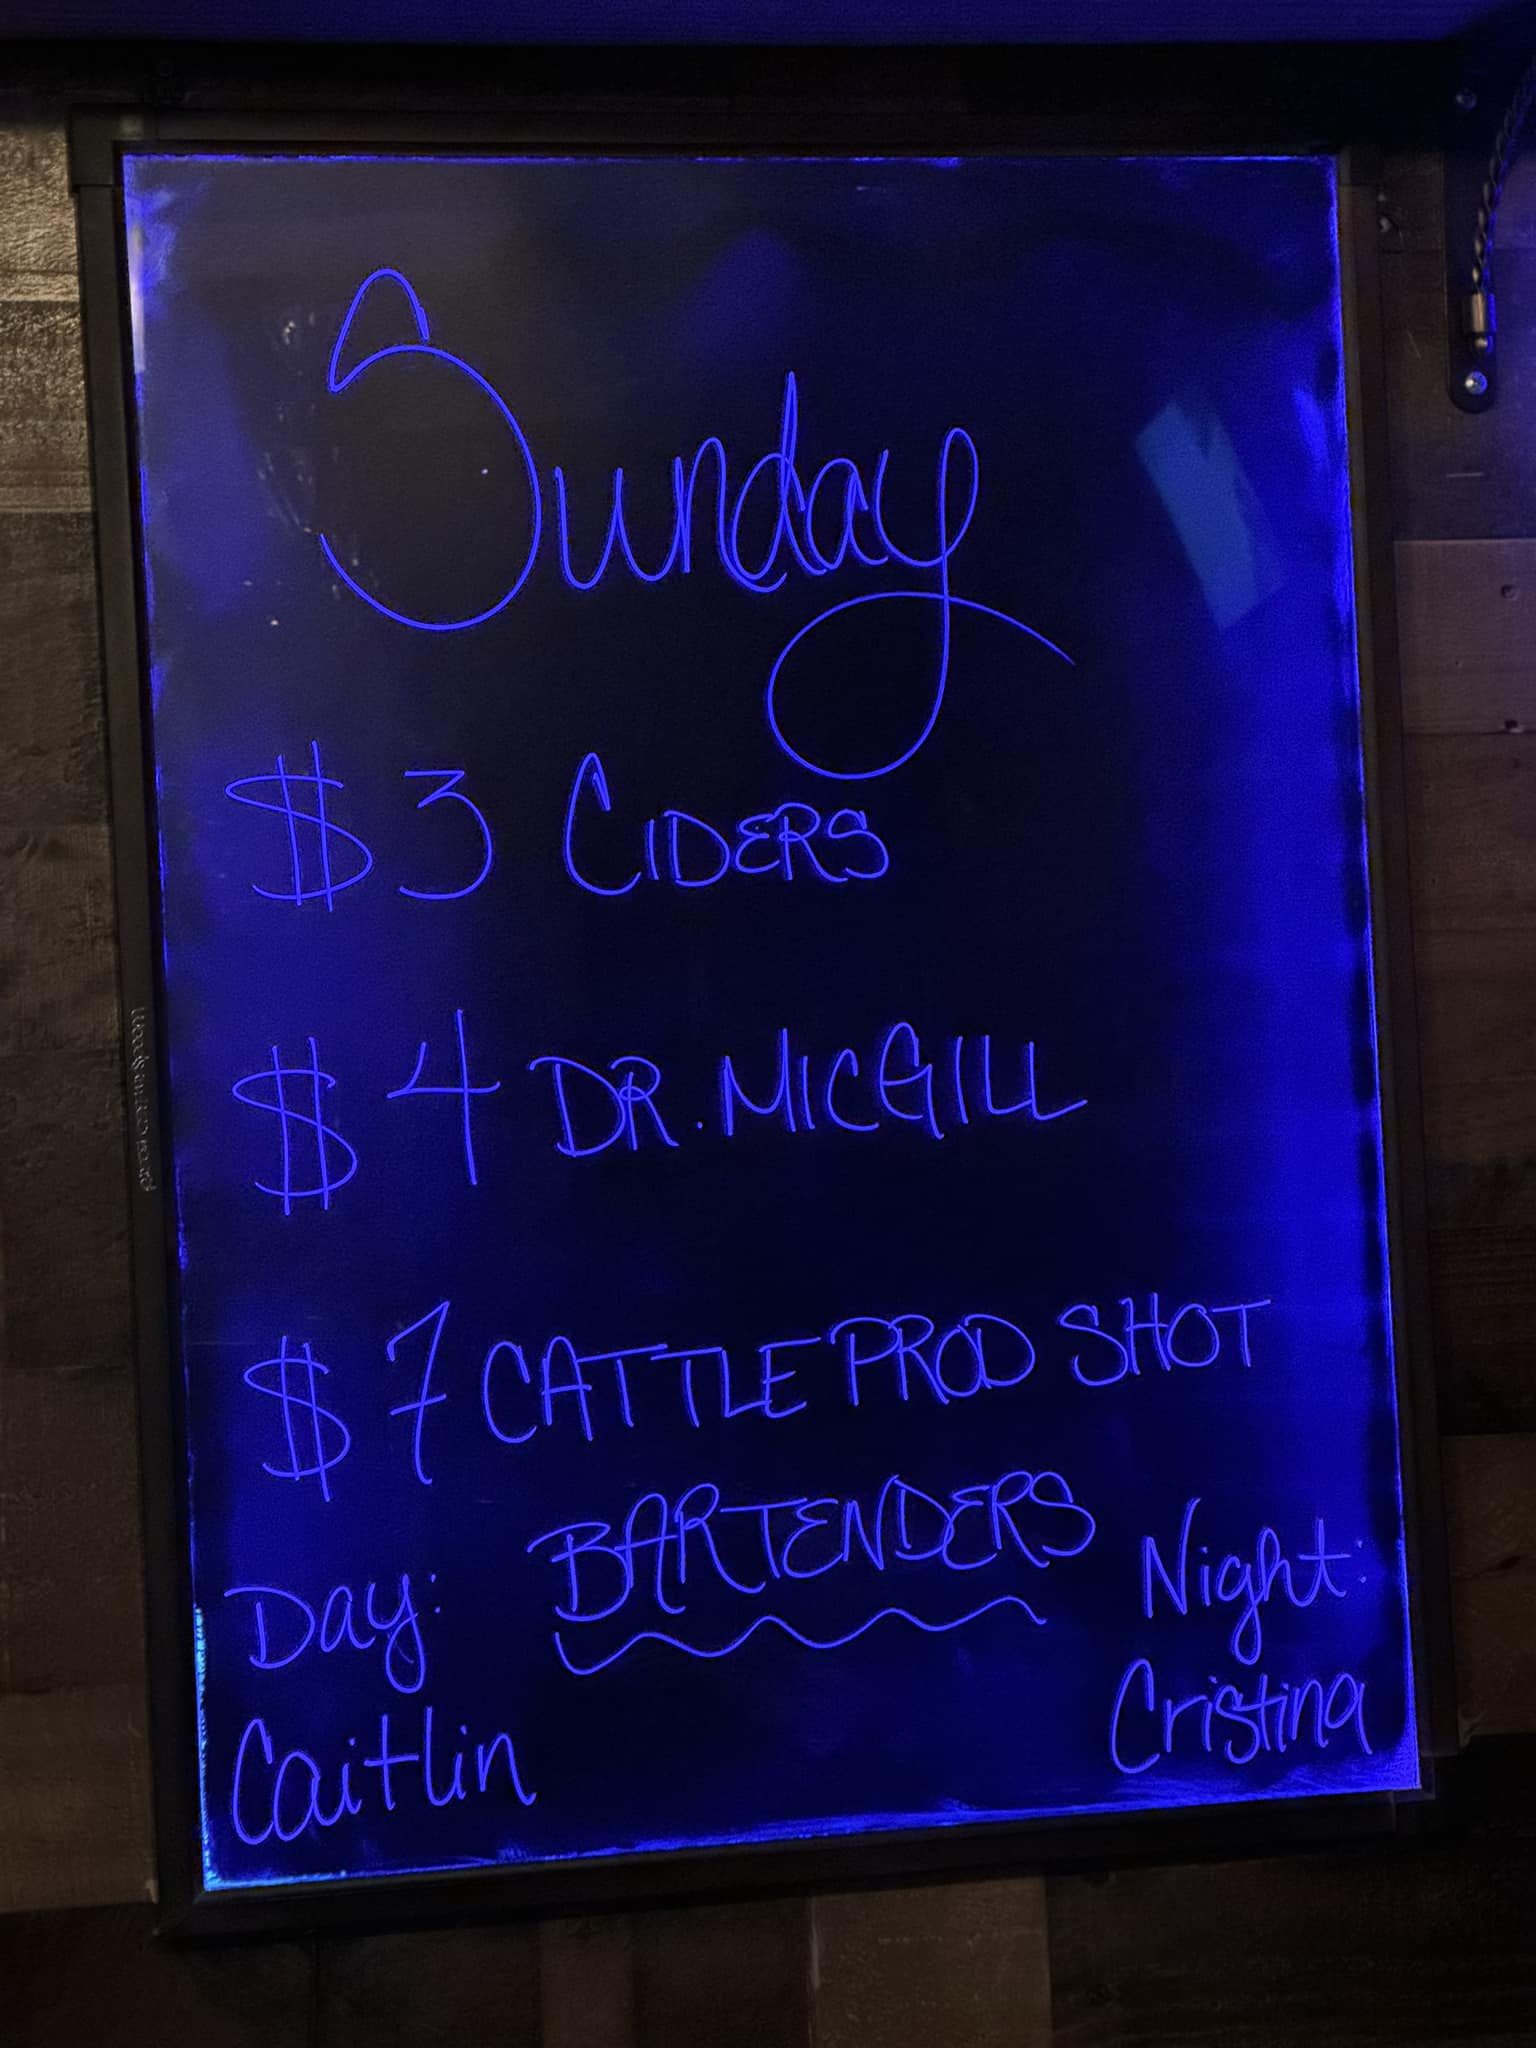 Sunday
$3 CIDERS
$4 DR. MCGILL
$7 CATTLE PROD SHOT
BARTENDERS
Day: Night:
Caitlin Cristina